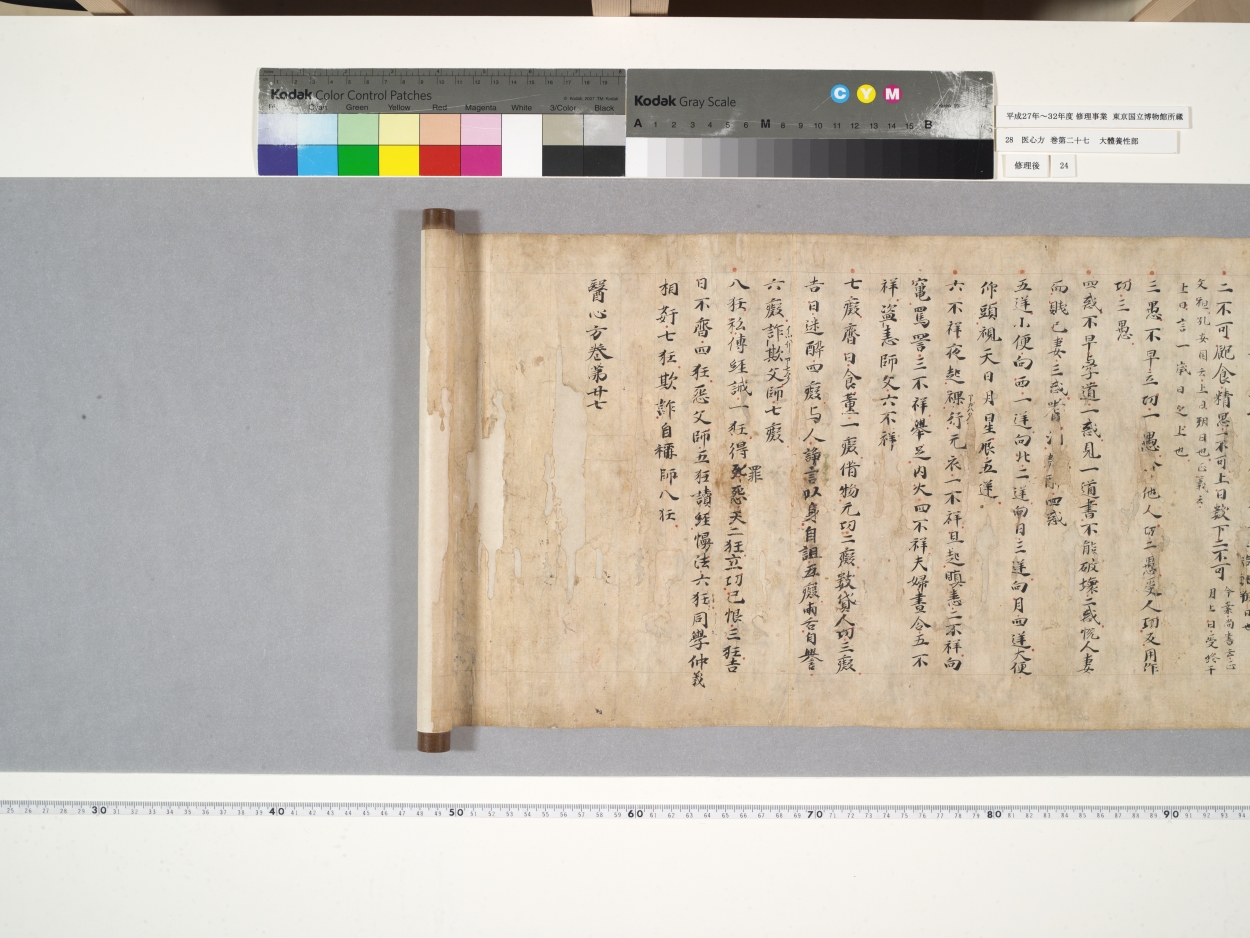 Kodak Color Control Patches
© Kodak, 2007 TM: Kodak
Cyan Green Yellow Red Magenta White 3/Color Black
Kodak Gray Scale
C Y M
A 1 2 3 4 5 6 M 8 9 10 11 12 13 14 15 B
平成27年～32年度 修理事業 東京国立博物館所蔵
28 医心方 巻第二十七 大體養性部
修理後 24
二不可飽食精思一不可上日数下二不可
上旦言一歳日之上也
三愚不早立功一愚 他人功二愚受人功反用作
功三愚
四惑不早學道一惑見一道書不能破壊二惑悦人妻
而賤己妻三惑嗜酒 四惑
五逆小便向西一逆向北二逆向日三逆向月四逆大便
仰頭視天日月星辰五逆
六不祥夜起裸行无衣一不祥旦起瞋恚二不祥向
竈罵詈三不祥擧足内火四不祥夫婦晝合五不
祥盗恚師父六不祥
七癡齋日食薫一癡借物元功二癡数貸人功三癡
吉日迷酔四癡与人諍言以身自詛五癡兩舌自譽
六癡詐欺父師七癡
八狂私傳經誡一狂得罪怨天二狂立功已恨三狂吉
日不齋四狂惡父師五狂讀經慢法六狂同學仲義
相奸七狂欺詐自稱師八狂
醫心方巻第廿七
30 40 50 60 70 80 90